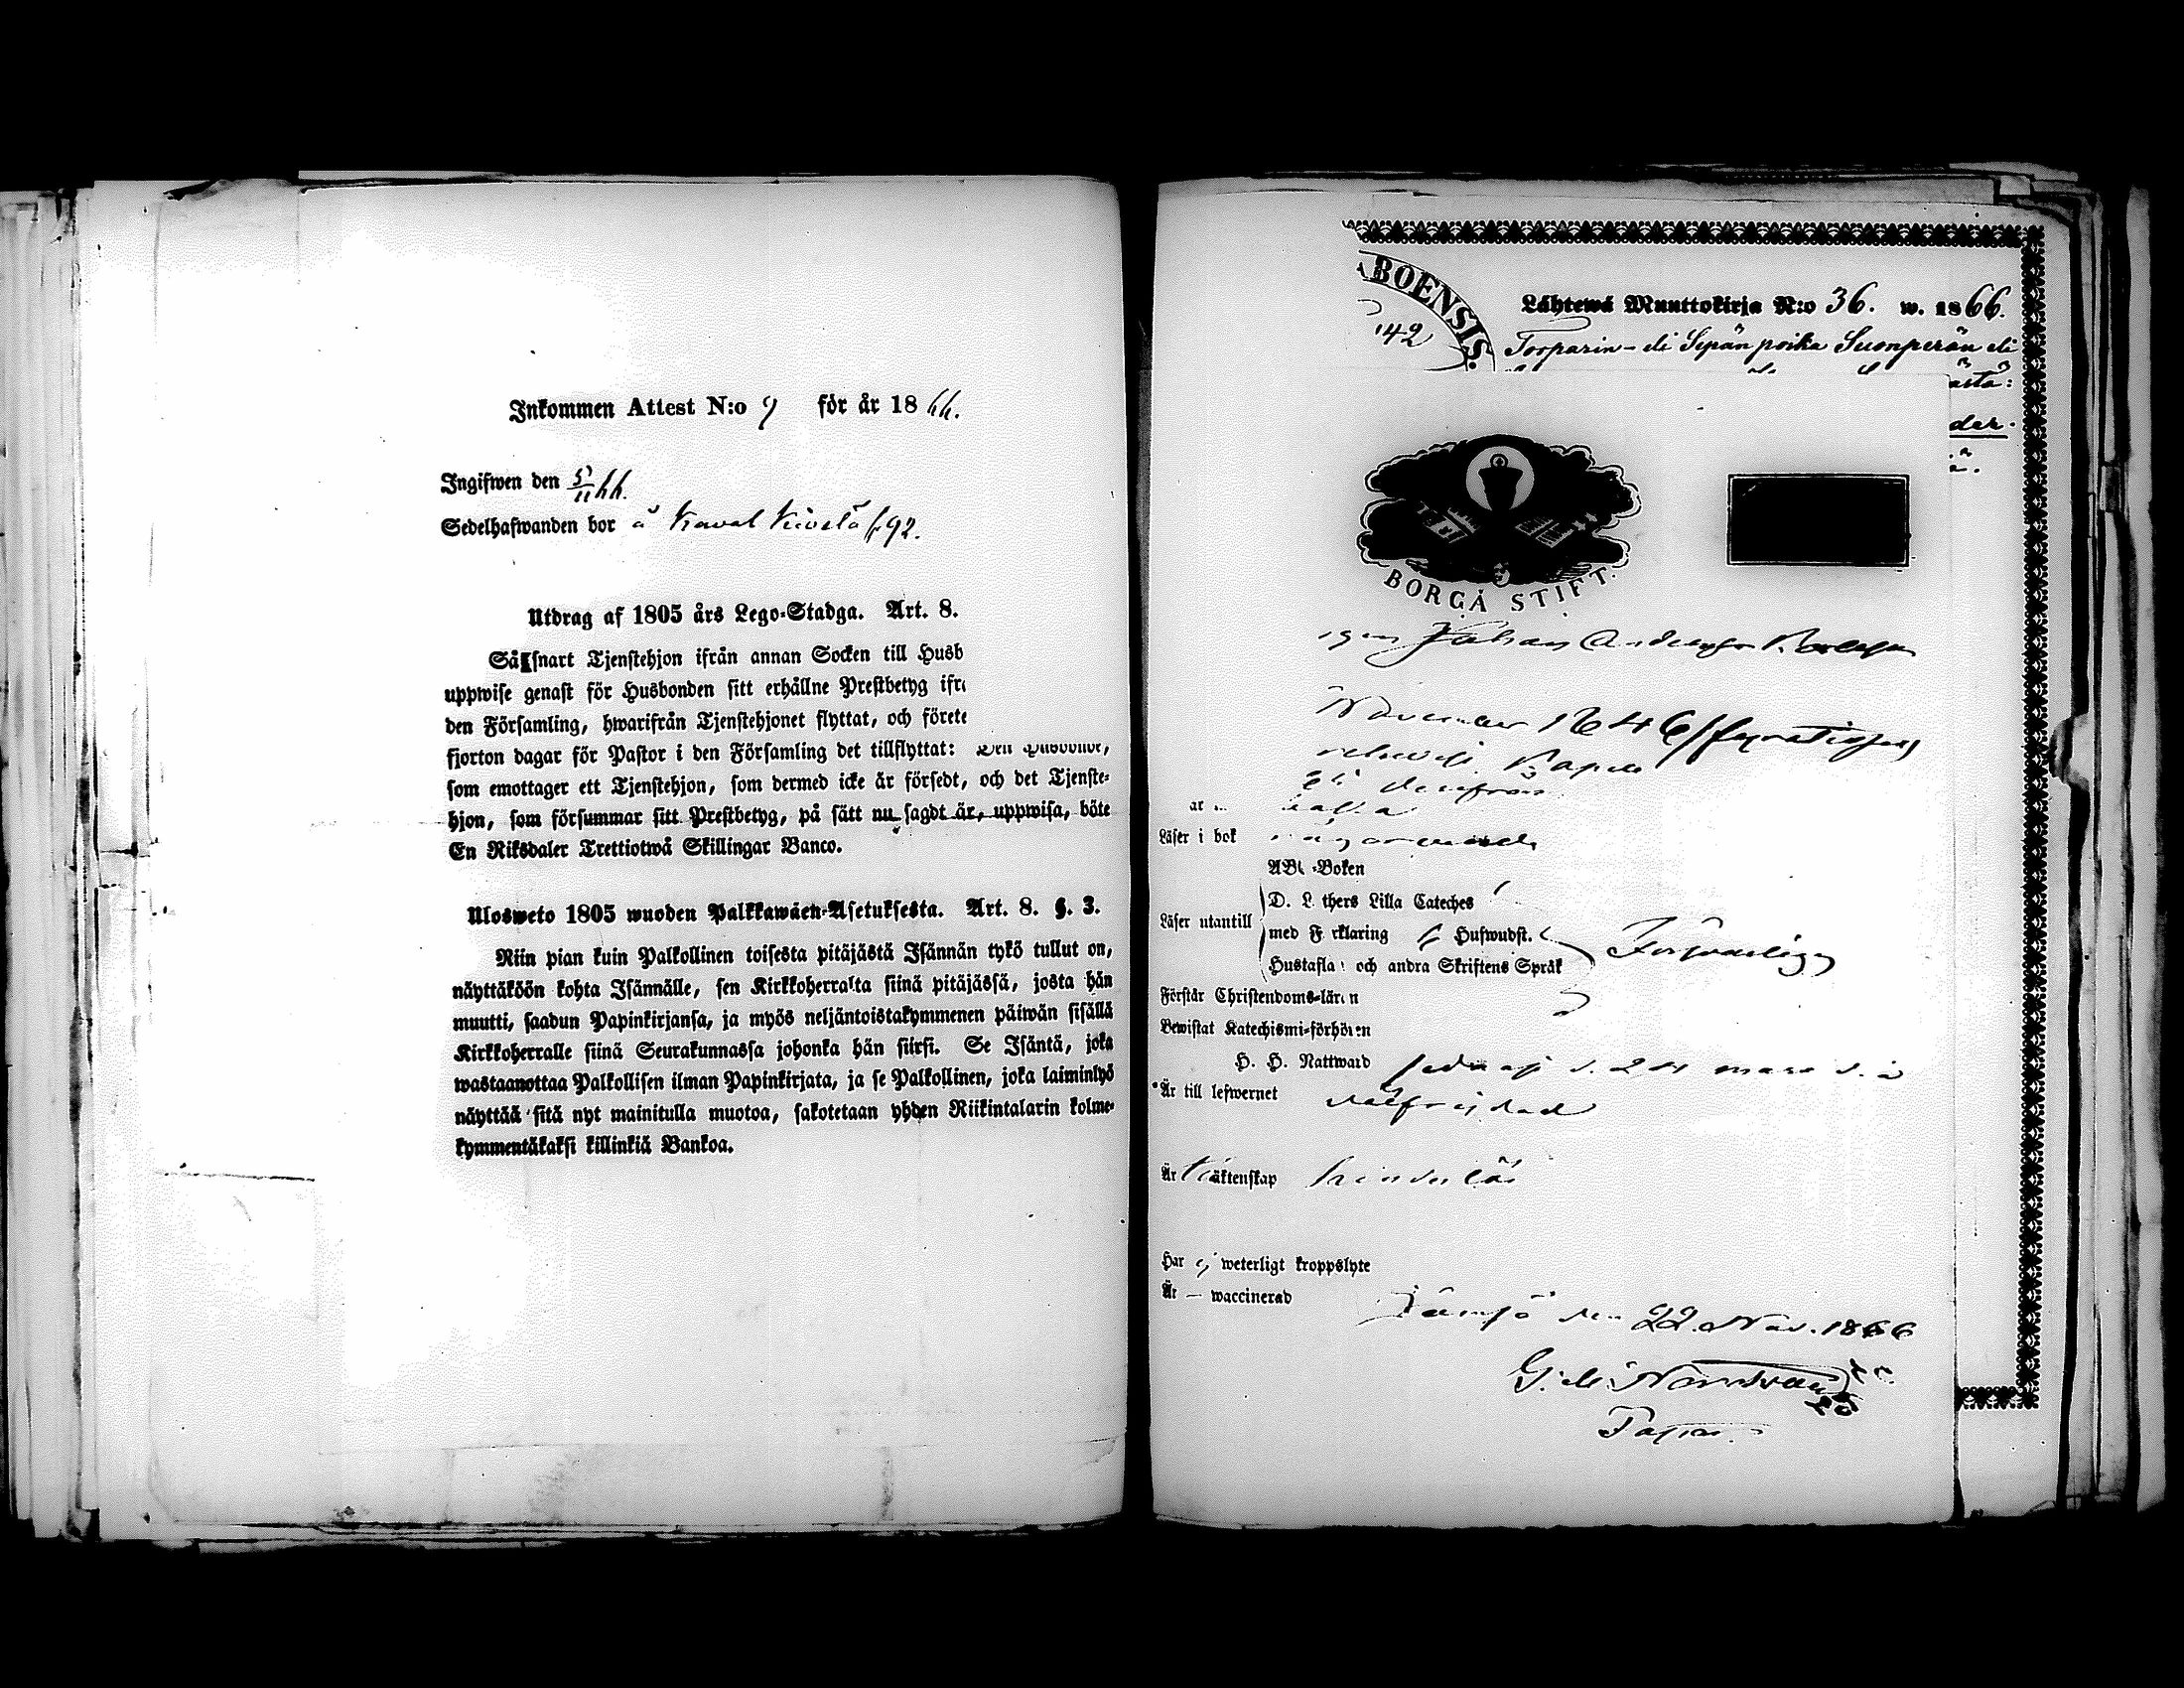 Inkommen Attest N:o 9 för år 1866.
Ingifwen den 5/11 66.
Sedelhafwanden bor å Kaval Kivelä f 92.
Utdrag af 1805 års Lego-Stadga. Art. 8.
Så snart Tjenstehjon ifrån annan Socken till Husb
uppwise genast för Husbonden sitt erhållne Prestbetyg ifr
den Församling, hwarifrån Tjenstehjonet flyttat, och förete
fjorton dagar för Pastor i den Församling det tillflyttat: Den Husbonde,
som emottager ett Tjenstehjon, som dermed icke är försedt, och det Tjenste-
hjon, som försummar sitt Prestbetyg, på sätt nu sagdt är, uppwisa, böte
En Riksdaler Trettiotwå Skillingar Banco.
Ulosweto 1805 wuoden Palkkawäen-Asetuksesta. Art. 8. §. 3.
Niin pian kuin Palkollinen toisesta pitäjästä Isännän tykö tullut on,
näyttäköön kohta Isännälle, sen Kirkkoherralta siinä pitäjässä, josta hän
muutti, saadun Papinkirjansa, ja myös neljäntoistakymmenen päiwän sisällä
Kirkkoherralle siinä Seurakunnassa johonka hän siirsi. Se Isäntä, joka
wastaanottaa Palkollisen ilman Papinkirjata, ja se Palkollinen, joka laiminlyö
näyttää sitä nyt mainitulla muotoa, sakotetaan yhden Riikintalarin kolme-
kymmentäkaksi killinkiä Bankoa.
ABOENSIS.
142
Lähtewä Muuttokirja N:o 36. w. 1866.
Torparin- eli Sepän poika Suonperän eli
ästä:
der.
ä.
BORGÅ STIFT.
Johan Andersson
November 1846
Kapell
Läser i bok
ABC-Boken
Läser utantill
D. L thers Lilla Cateches
med F rklaring Hufwudst.
Hustafla och andra Skriftens Språk
Försvarligen
Förstår Christendoms-läran
Bewistat Katechismi-förhören
H. H. Nattward sednast d. 24 mars d. å
Är till lefwernet välfrejdad
Är till äktenskap hinderlös
Har ej weterligt kroppslyte
Är — waccinerad
Jämsä den 22. Nov. 1866